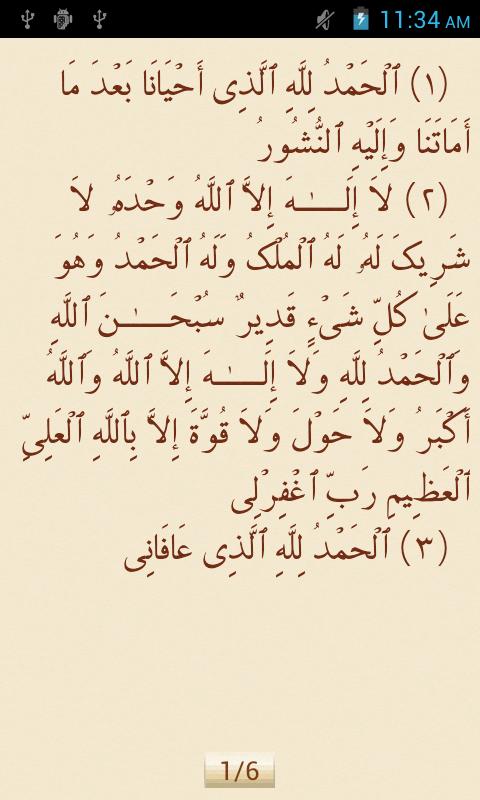 11:34 AM
(١) ٱلْحَمْدُ لِلَّهِ ٱلَّذِى أَحْيَانَا بَعْدَ مَا
أَمَاتَنَا وَإِلَيْهِ ٱلنُّشُورُ
(٢) لاَ إِلَـــٰـهَ إِلاَّ ٱللَّهُ وَحْدَهُ لاَ
شَرِيكَ لَهُ لَهُ ٱلْمُلْكُ وَلَهُ ٱلْحَمْدُ وَهُوَ
عَلَىٰ كُلِّ شَىْءٍ قَدِيرٌ سُبْحَـــٰـنَ ٱللَّهِ
وَٱلْحَمْدُ لِلَّهِ وَلاَ إِلَـــٰـهَ إِلاَّ ٱللَّهُ وَٱللَّهُ
أَكْبَرُ وَلاَ حَوْلَ وَلاَ قُوَّةَ إِلاَّ بِٱللَّهِ ٱلْعَلِىِّ
ٱلْعَظِيمِ رَبِّ ٱغْفِرْلِى
(٣) ٱلْحَمْدُ لِلَّهِ ٱلَّذِى عَافَانِى
1/6